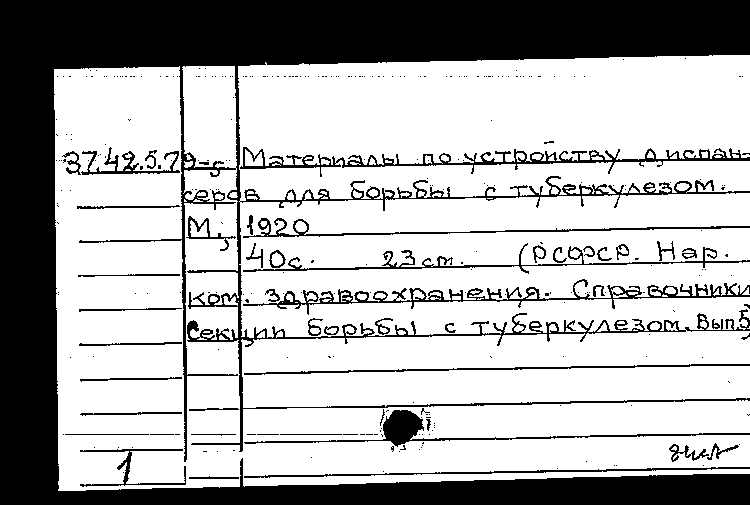 37.42.5.79-5 Материалы по устройству диспан-
серов для борьбы с туберкулезом.
М., 1920
40с. 23cm. (РСФСР. Нар.
ком. здравоохранения. Справочники
секции борьбы с туберкулезом. Вып.5)
1